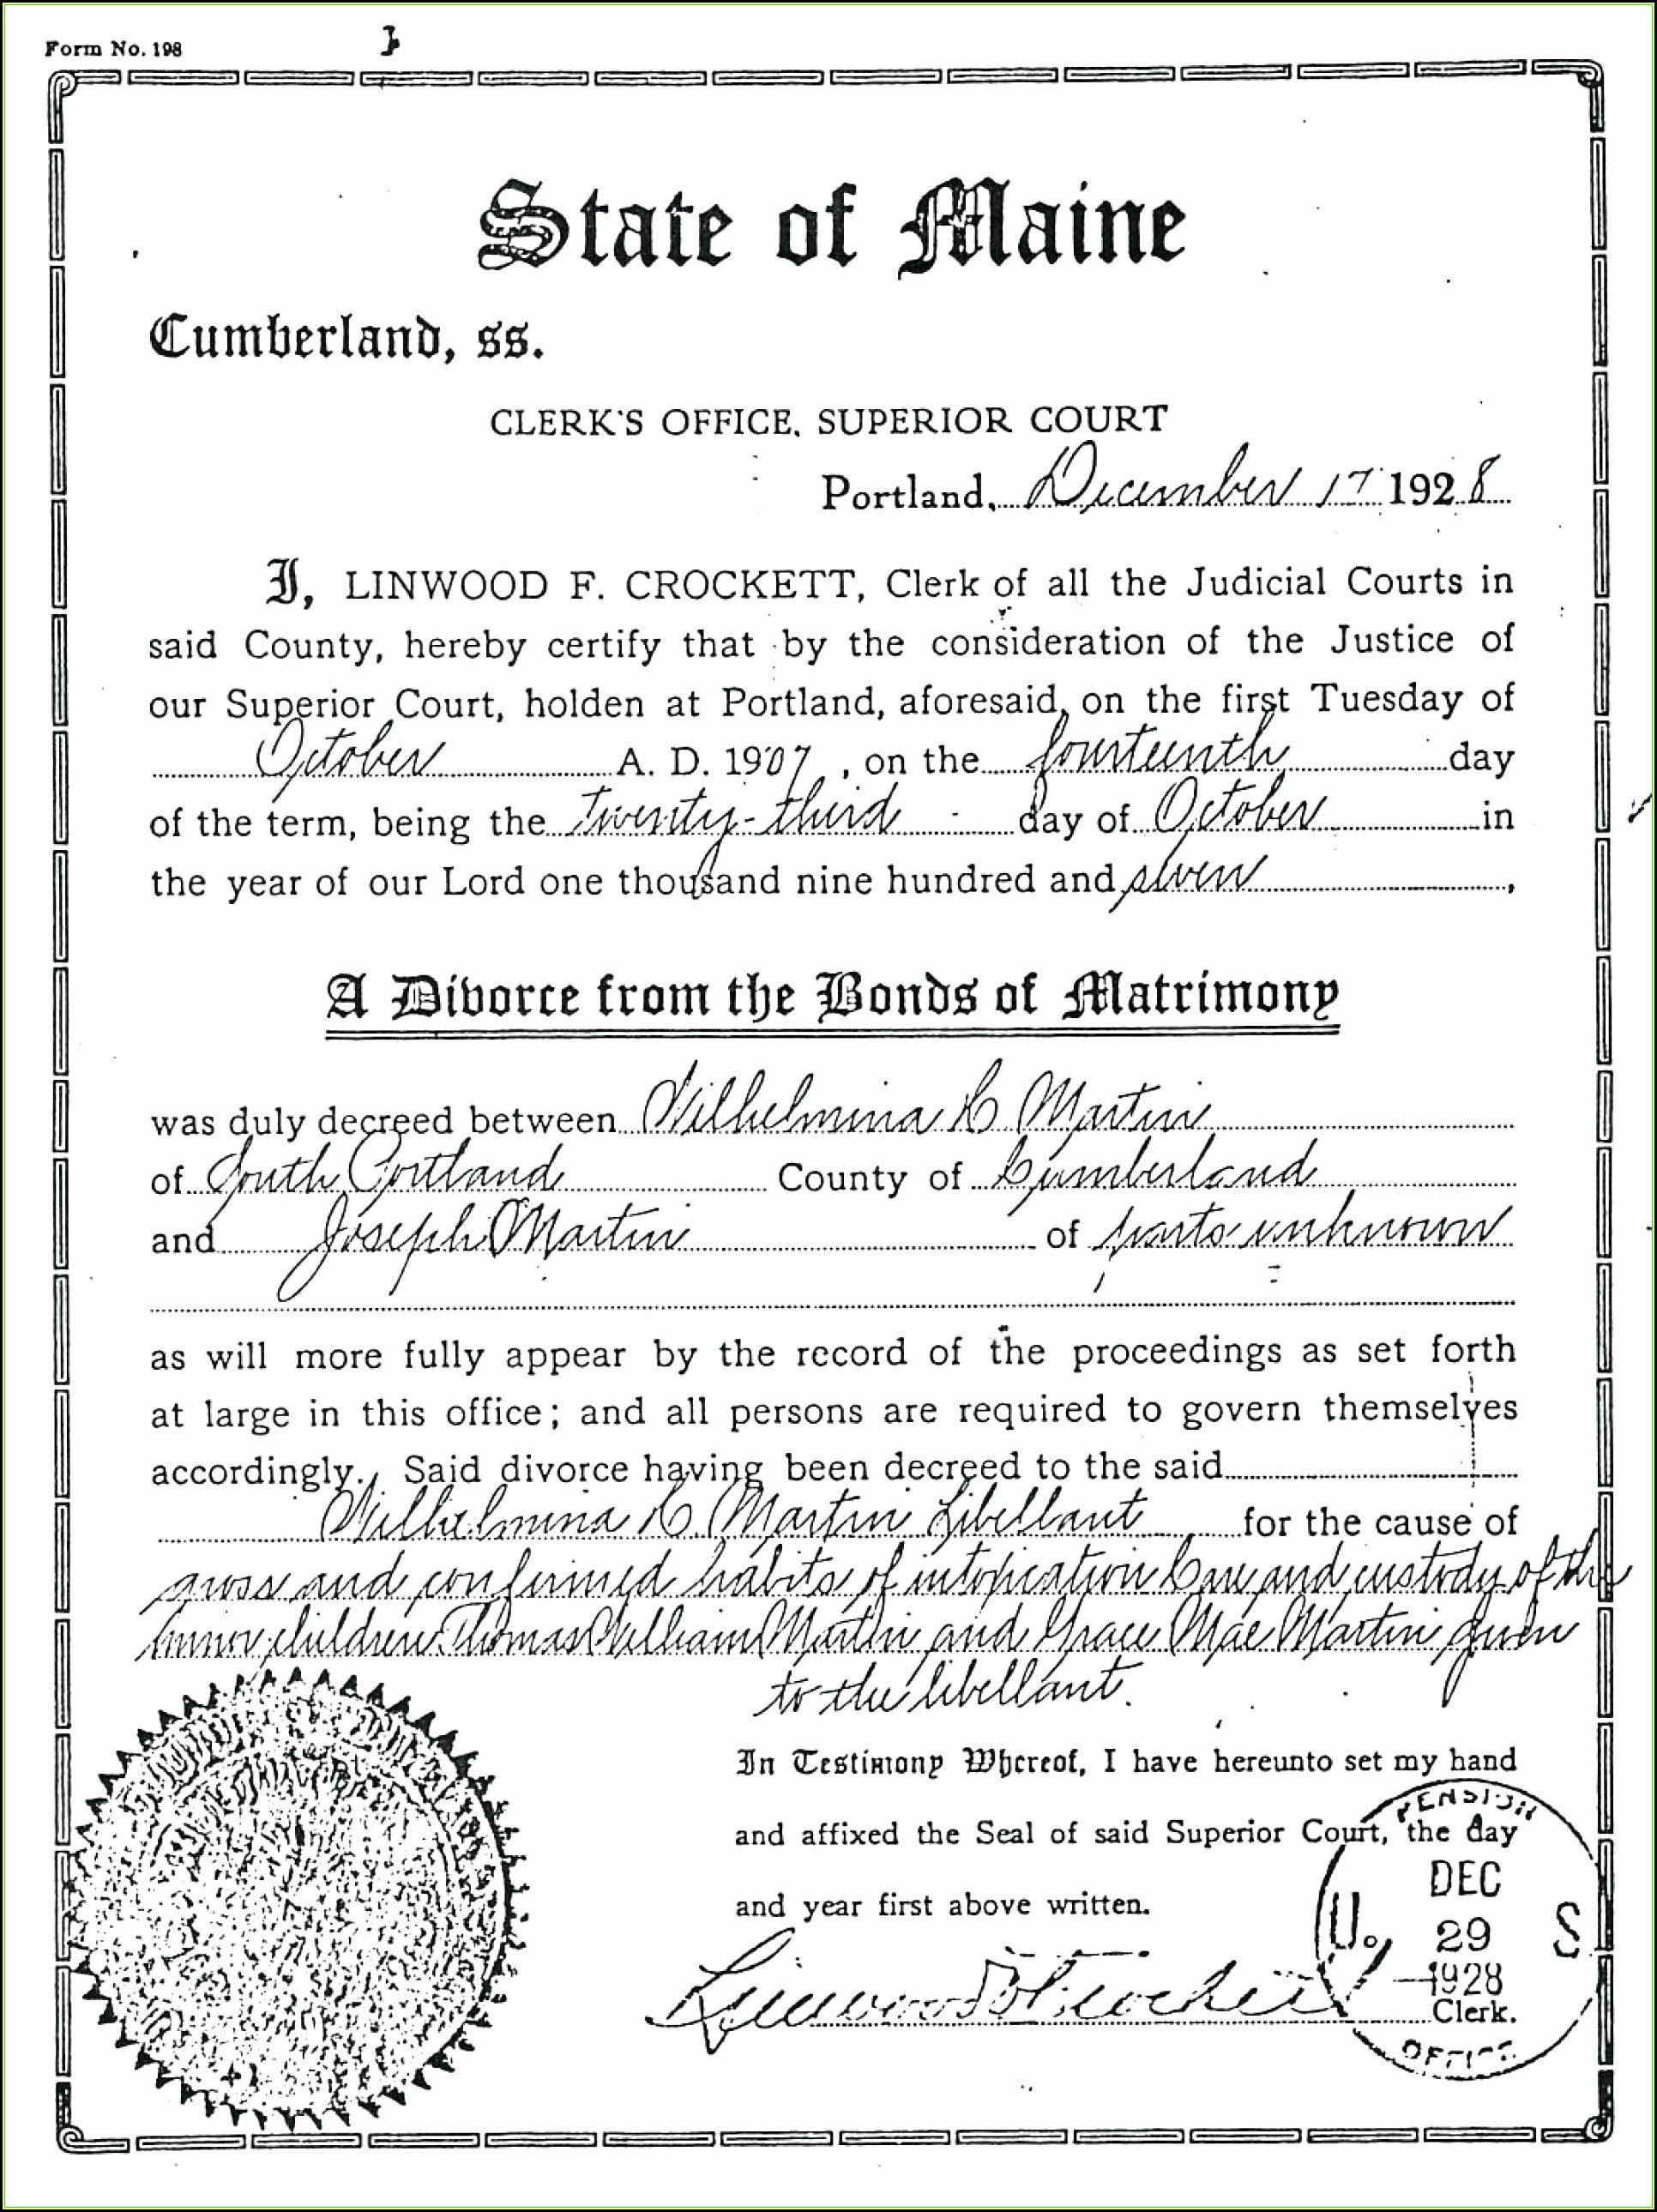 Form No. 198
State of Maine
Cumberland, ss.
CLERK'S OFFICE, SUPERIOR COURT
Portland, December 17 1928
I, LINWOOD F. CROCKETT, Clerk of all the Judicial Courts in
said County, hereby certify that by the consideration of the Justice of
our Superior Court, holden at Portland, aforesaid, on the first Tuesday of
October A. D. 1907, on the fourteenth day
of the term, being the twenty-third day of October in
the year of our Lord one thousand nine hundred and seven,
A Divorce from the Bonds of Matrimony
was duly decreed between Wilhelmina C. Martin
of South Portland County of Cumberland
and Joseph Martin of parts unknown
as will more fully appear by the record of the proceedings as set forth
at large in this office; and all persons are required to govern themselves
accordingly. Said divorce having been decreed to the said
Wilhelmina C. Martin Libellant for the cause of
gross and confirmed habits of intoxication Care and custody of the
minor children Thomas William Martin and Grace Mae Martin given
to the libellant.
In Testimony Whereof, I have hereunto set my hand
and affixed the Seal of said Superior Court, the day
and year first above written.
Linwood F. Crockett
Clerk.
PENSION
DEC
U. 29 S
1928
OFFICE